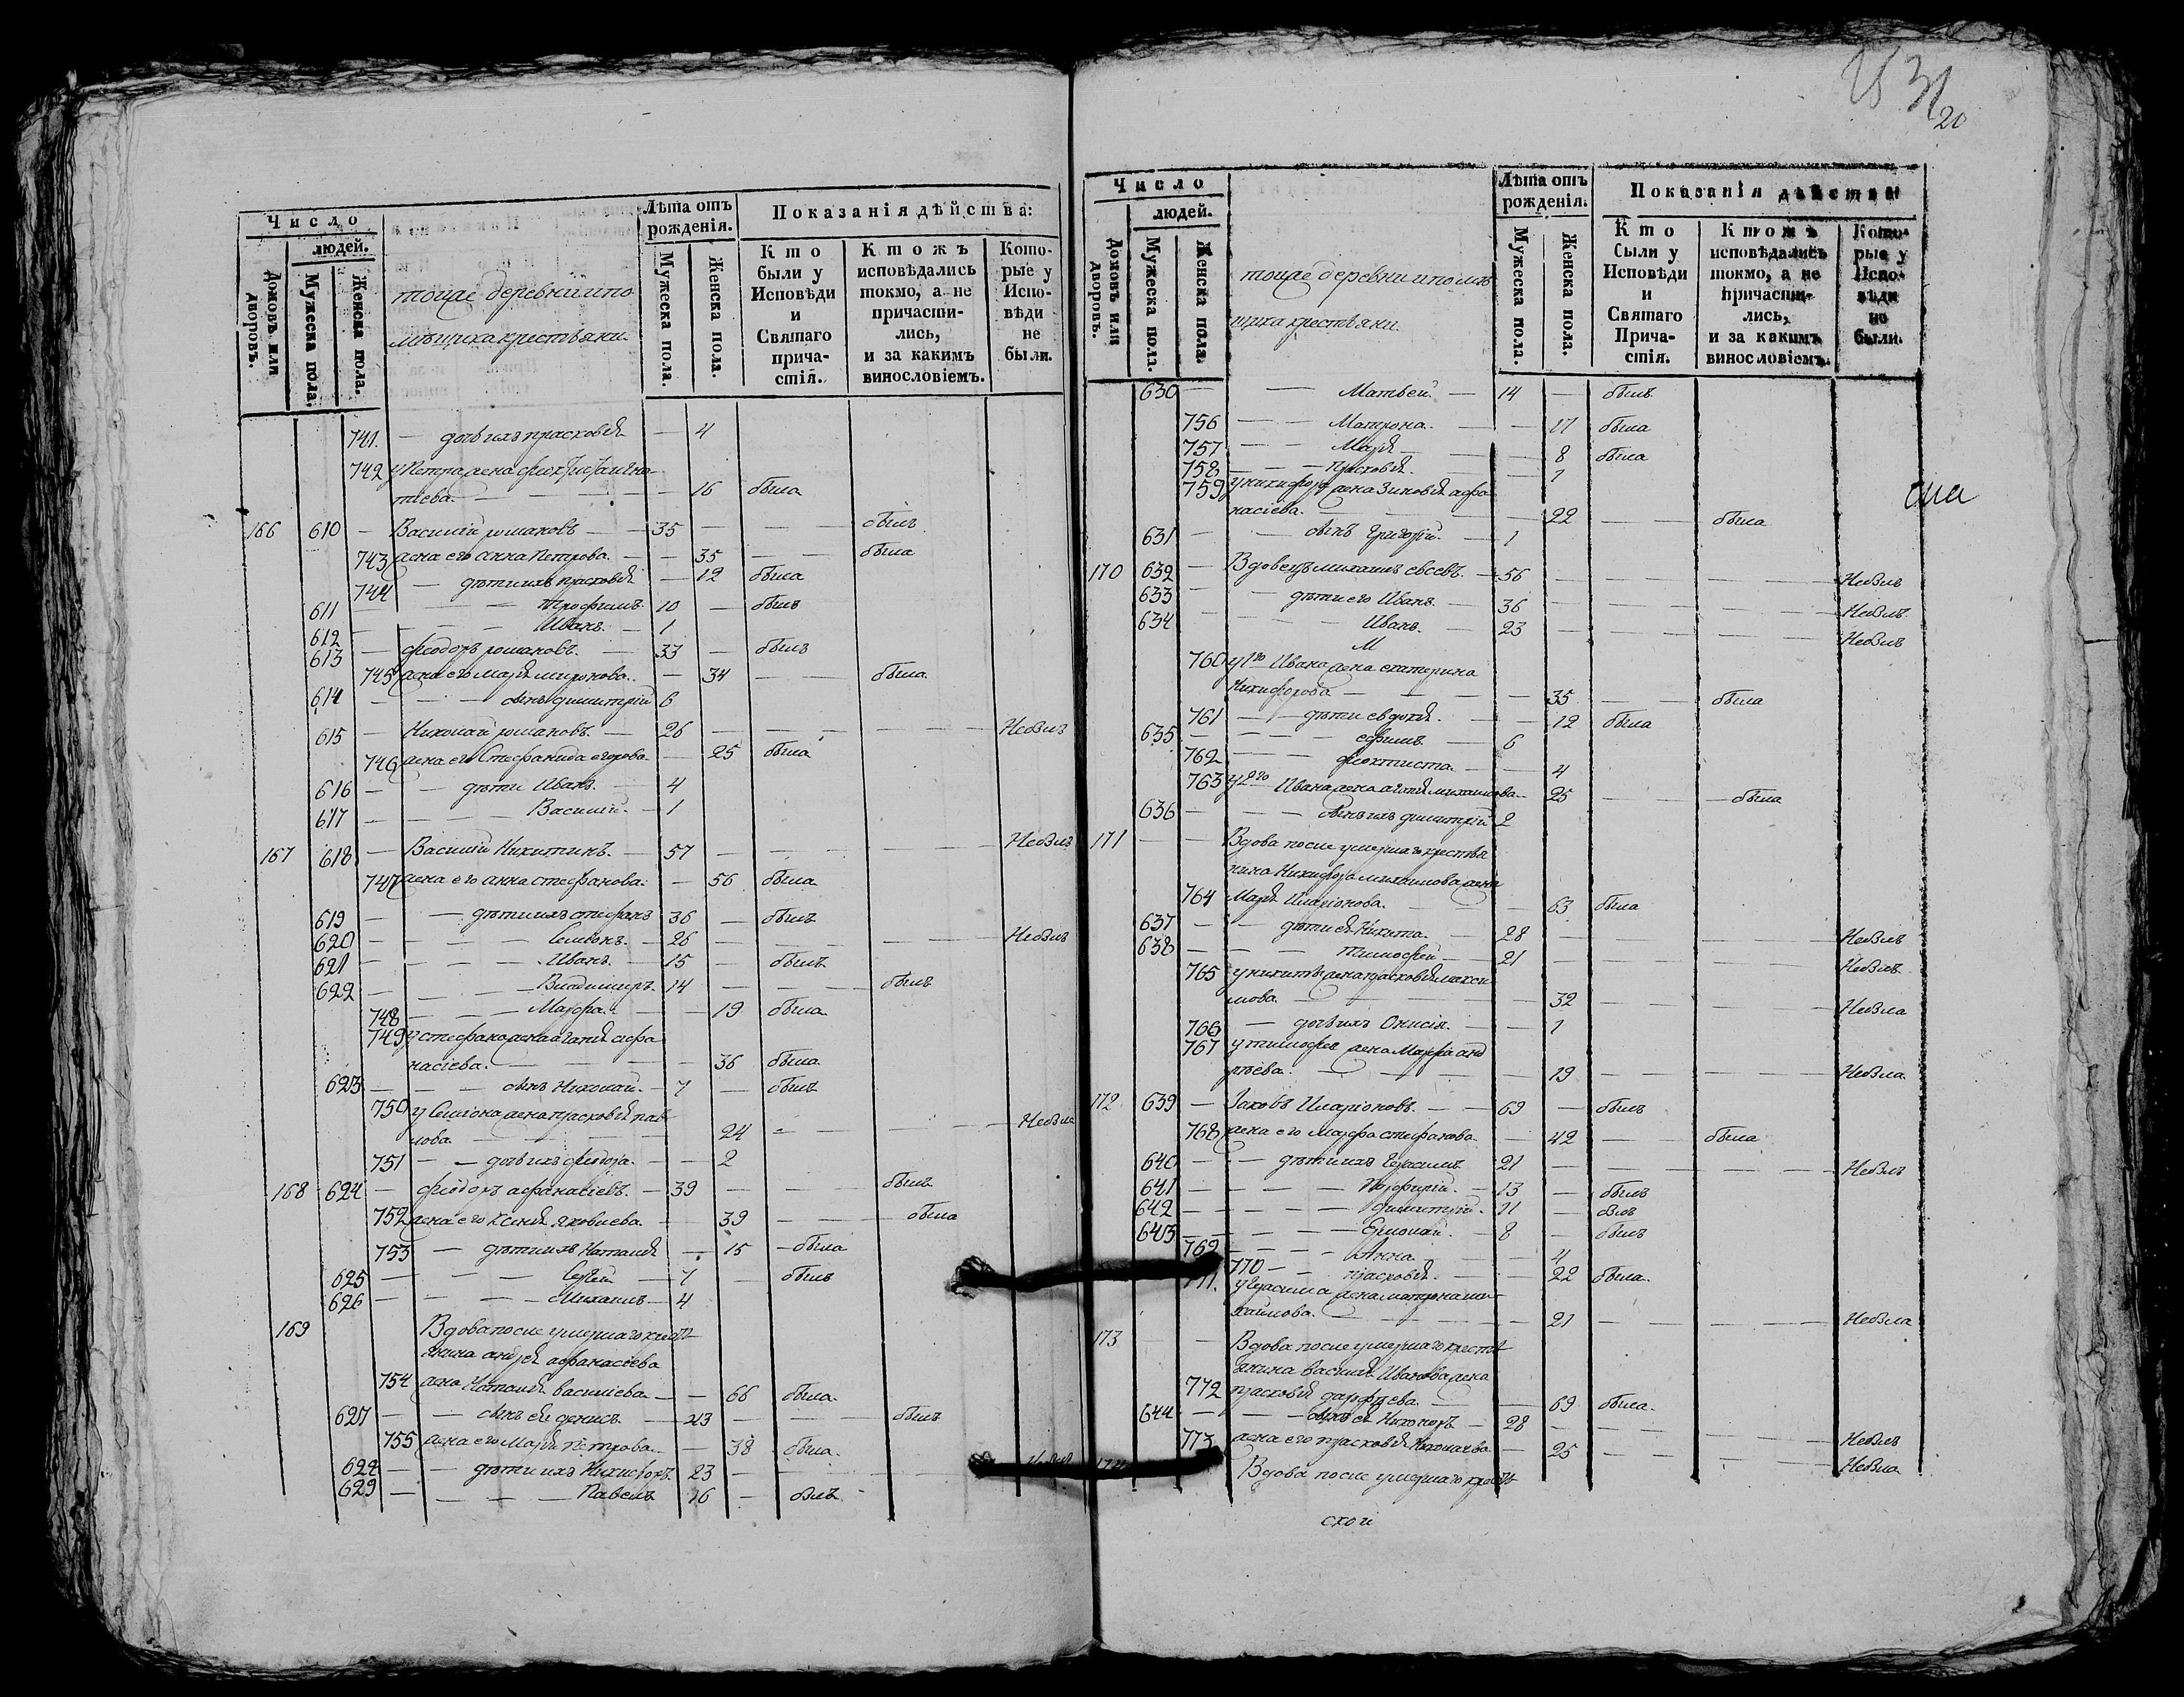 25 31
20
Число
людей.
Домовъ или дворовъ.
Мужеска пола.
Женска пола.
Лѣта отъ рожденія.
Мужеска пола.
Женска пола.
Показанія дѣйства:
Кто были у Исповѣди и Святаго причастія.
Ктожъ исповѣдались токмо, а не причастились, и за какимъ винословіемъ.
Которые у Исповѣди не были.
тоцае деревни ипо
мѣщика крестьяни
741 — дочь ихъ прасковья — 4
742 у Петра жена Игна-
тіева — 16 была
166 610 — Василий романовъ — 35 — — былъ
743 жена его анна Петрова — 35 — — была
744 — дѣти ихъ прасковья — 12 была
611 — Трофимъ 10 — былъ
612 — Иванъ — 1
613 — феодоръ романовъ — 33 — былъ
745 жена его марья миронова — 34 — — была
614 — — сынъ димитрій 6
615 — Николай романовъ — 26 — — — Небылъ
746 жена его Стефанида егорова — 25 была
616 — — дѣти Иванъ — 4
617 — — Василій — 1
167 618 — Василій Никитинъ — 57 — — — Небылъ
747 жена его анна стефанова — 56 была
619 — — дѣти ихъ стефанъ 36 — былъ
620 — — Семіонъ — 26 — — — Небылъ
621 — — Иванъ — 15 — былъ
622 — — Владимиръ 14 — — былъ
748 — — Марфа — 19 была
749 у стефана жена агапія афа
насіева — 36 была
623 — — сынъ Николай — 7 — былъ
750 у Семіона жена прасковья пав
лова — 24 — — — Небыла
751 — — дочь ихъ феодора — 2
168 624 — феодоръ афанасіевъ — 39 — — былъ
752 жена его Ксенія яковлева — 39 — — была
753 — дѣти ихъ Наталія — 15 — была
625 — — Сергей — 7 — былъ
626 — — Михаилъ — 4
169 Вдова после умершаго крестья
янина андрея афанасіева
754 жена Наталія василіева — 66 была
627 — — сынъ ея денисъ — 43 — — былъ
755 жена его Марья петрова — 38 была
628 — — дѣти ихъ Никифоръ 23 — — — Небылъ
629 — — Павелъ 16 — былъ
Число
людей.
Домовъ или дворовъ.
Мужеска пола.
Женска пола.
Лѣта отъ рожденія.
Мужеска пола.
Женска пола.
Показанія дѣйства
Кто были у Исповѣди и Святаго Причастія.
Ктожъ исповѣдались токмо, а не причастились, и за какимъ винословіемъ.
Которые у Исповѣди не были.
тоцае деревни ипомѣ
щика крестьяни
630 — — Матвей — 14 — былъ
756 — — Матрона — 17 была
757 — — Марья — 8 была
758 — — прасковья — 1
759 у никифора жена Зиновія афа
насіева — 22 — — была
631 — — сынъ Григорій — 1
170 632 — Вдовецъ михаилъ евсевъ — 56 — — — Небылъ
633 — — дѣти его Иванъ — 36 — — — Небылъ
634 — — Иванъ — 23 — — — Небылъ
М
760 у 1го Ивана жена екатерина
Никифорова — 35 — — была
761 — — дѣти евдокія — 12 была
635 — — ефимъ — 6
762 — — феоктиста — 4
763 у 2го Ивана жена агапія михаилова — 25 — — была
636 — — сынъ ихъ димитрій 2
171 — — Вдова после умершаго крестья
янина Никифора михаилова жена
764 Марья Иларіонова — 63 была
637 — — дѣти ея Никита — 28 — — — Небылъ
638 — — Тимофей — 21 — — — Небылъ
765 у никиты жена прасковья макси
мова — 32 — — — Небыла
766 — — дочь ихъ Онисія — 1
767 у тимофея жена Марфа анд
реева — 19 — — — Небыла
172 639 — Іаковъ Иларіоновъ — 69 — былъ
768 жена его марфа стефанова — 42 — была
640 — — дѣти ихъ Герасимъ 21 — — — Небылъ
641 — — Порфирій — 13 — былъ
642 — — димитрій — 11 — былъ
643 — — Ермолай — 8 — былъ
769 — — Анна — 4
770 — — прасковья — 22 была
771 у Герасима жена матрона ми
хаилова — 21 — — — Небыла
173 — Вдова после умершаго крестья
янина василія Иванова жена
772 прасковья — 69 была
644 — — сынъ ея Никоноръ — 28 — — — Небылъ
773 жена его прасковья Николаева — 25 — — — Небыла
174 Вдова после умершаго крестья
ской